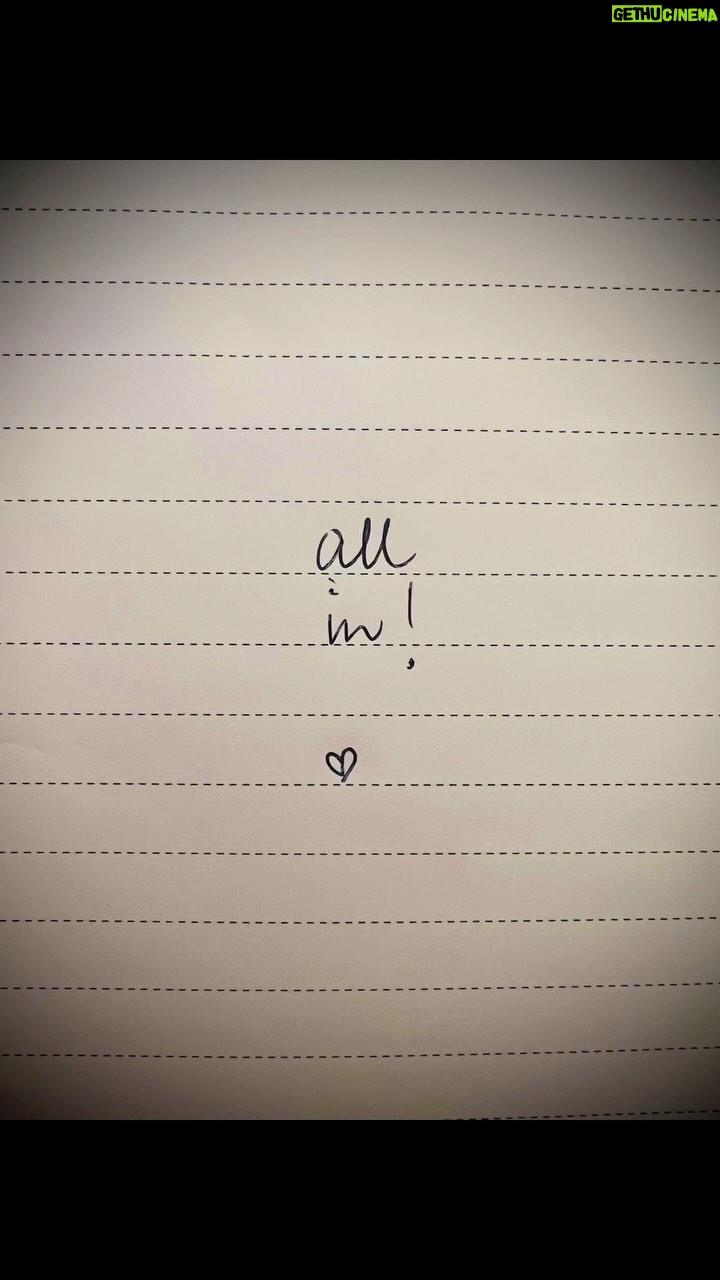 GETHUCINEMA
all
in!
♡